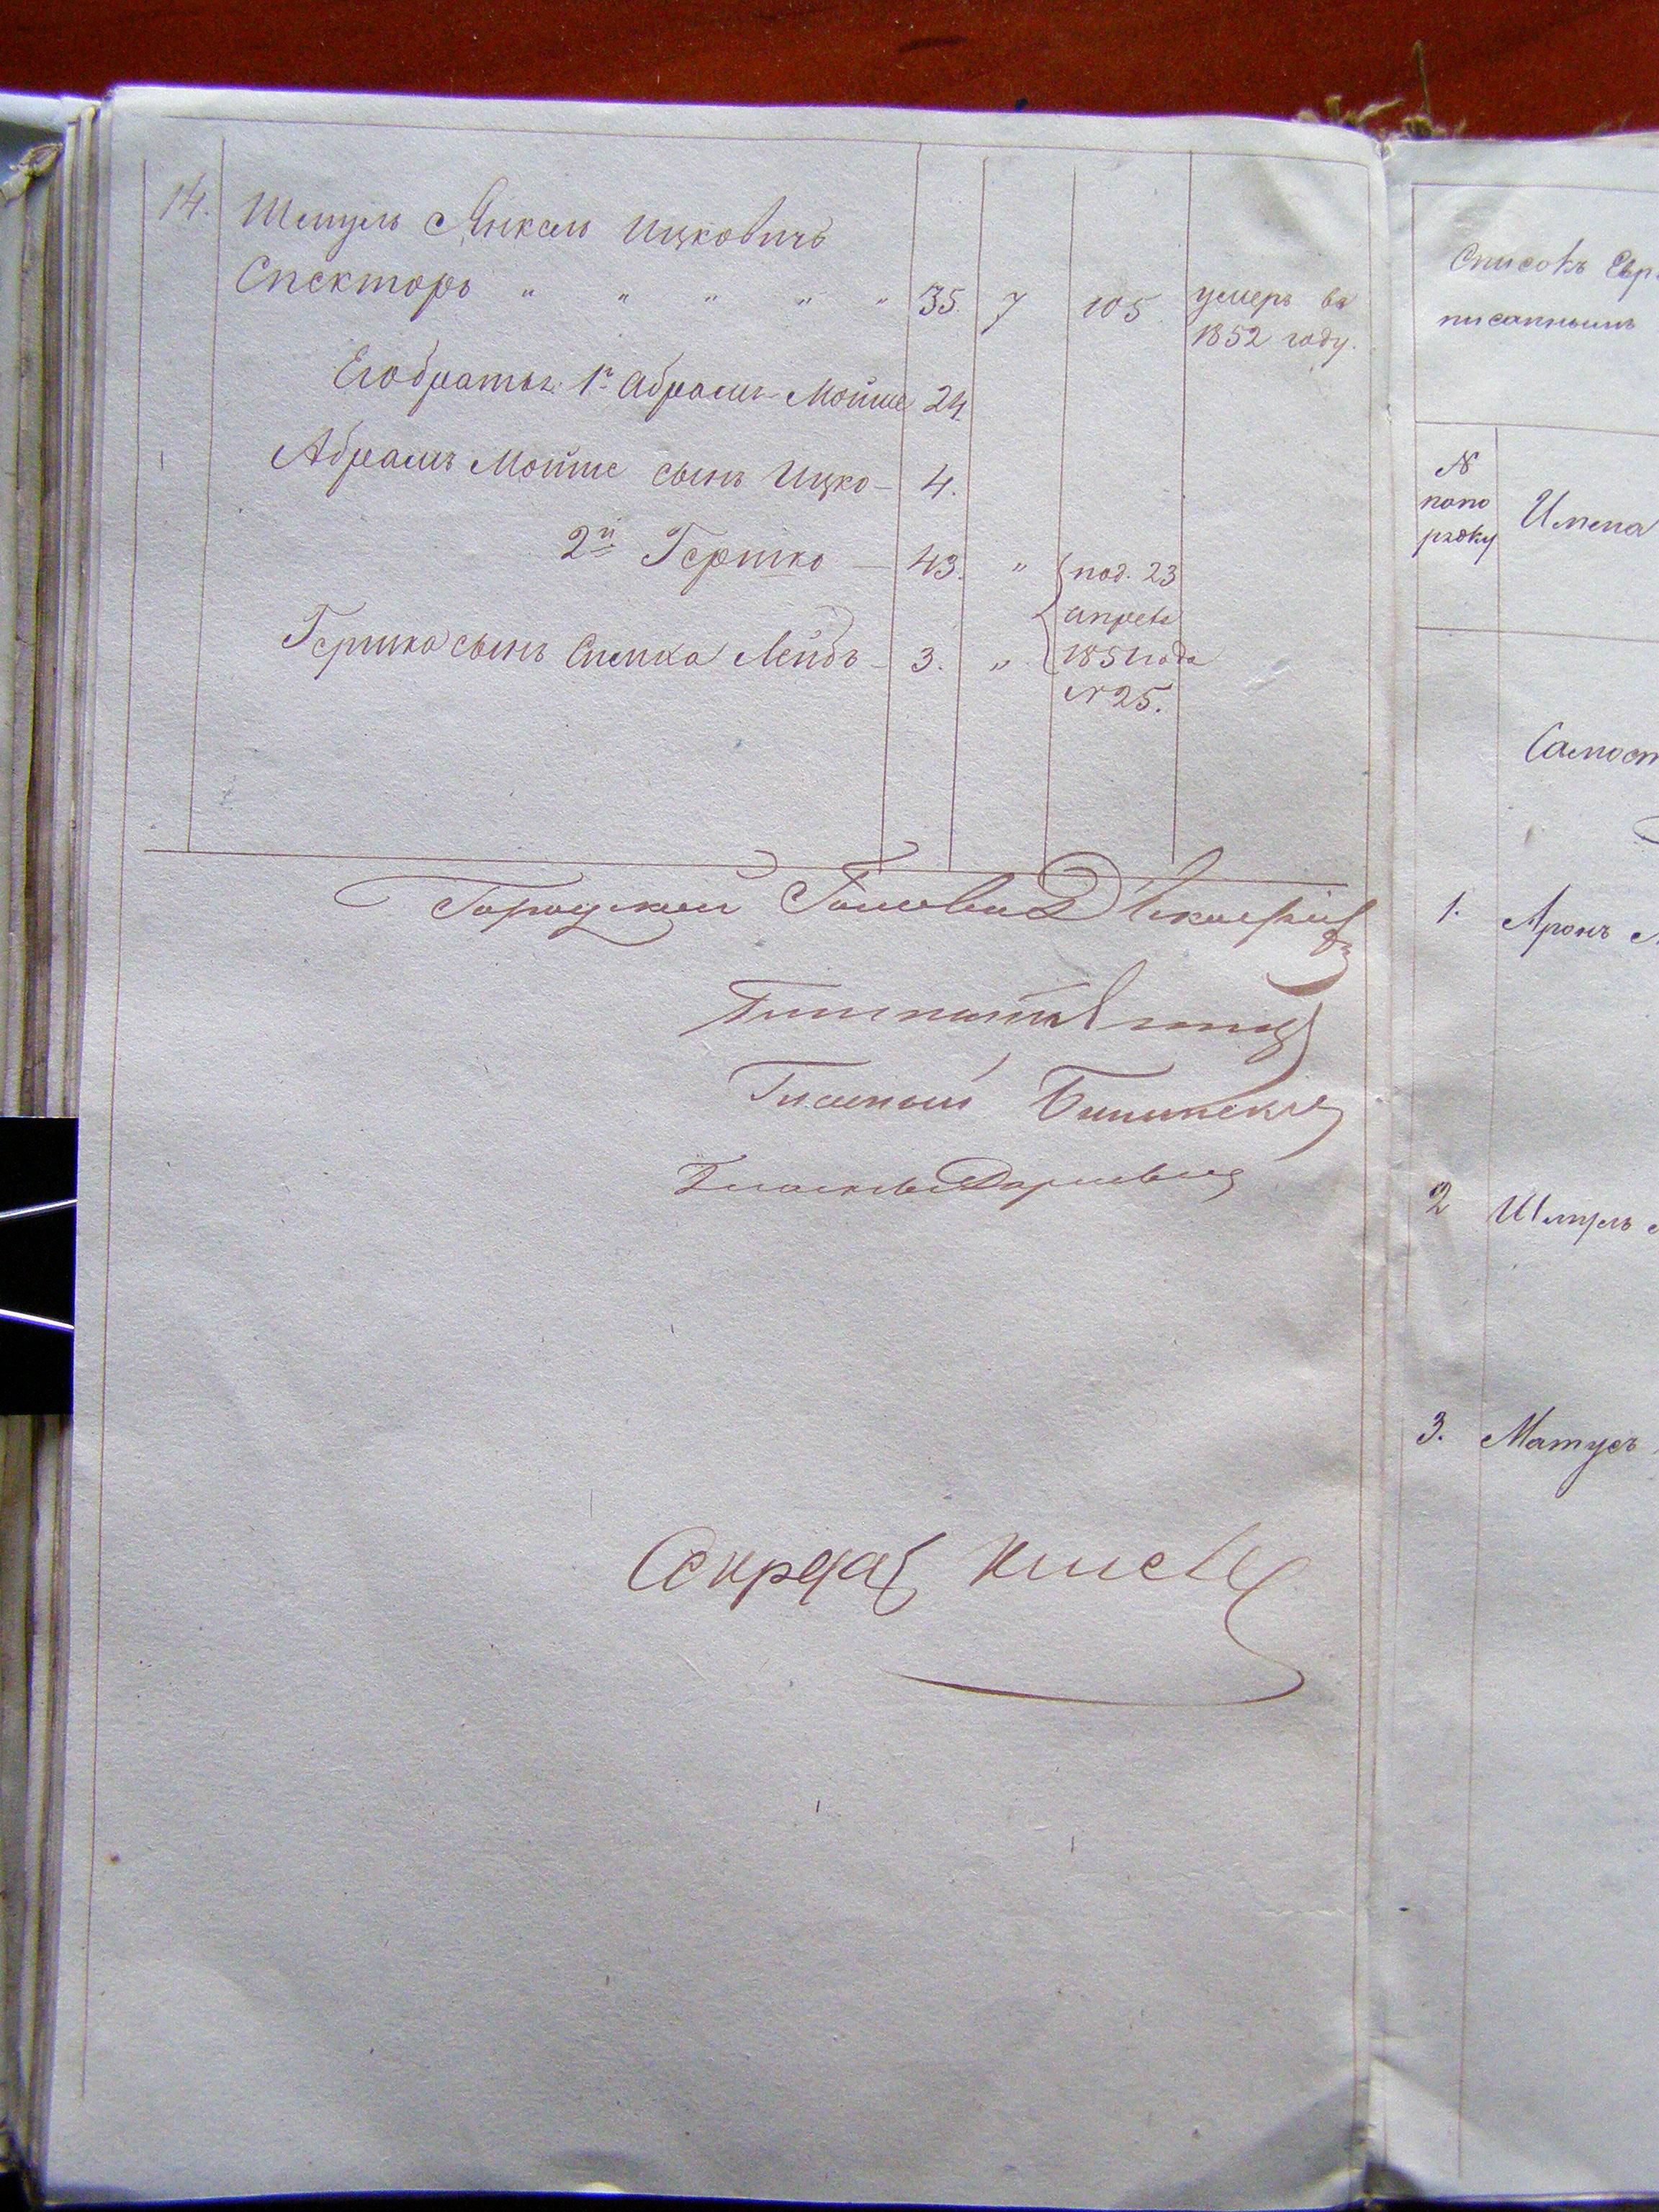 14. Шмуль Янкель Ицковичъ
Спекторъ " " " " " 35. 7 105. умеръ въ
1852 году.
Его братья: 1й Абрамъ-Мойше 24.
Абрамъ Мойше сынъ Ицко - 4.
2й Гершко - 43. " под. 23
апреля
Гершка сынъ Симха Лейбъ - 3. " 1851 года
№ 25.
Городской Голова
Гласный
Секретарь
Списокъ Евр
писаннымъ
№
попо
рядку
Имена
Самост
1. Аронъ
2 Шмуль
3. Матусъ